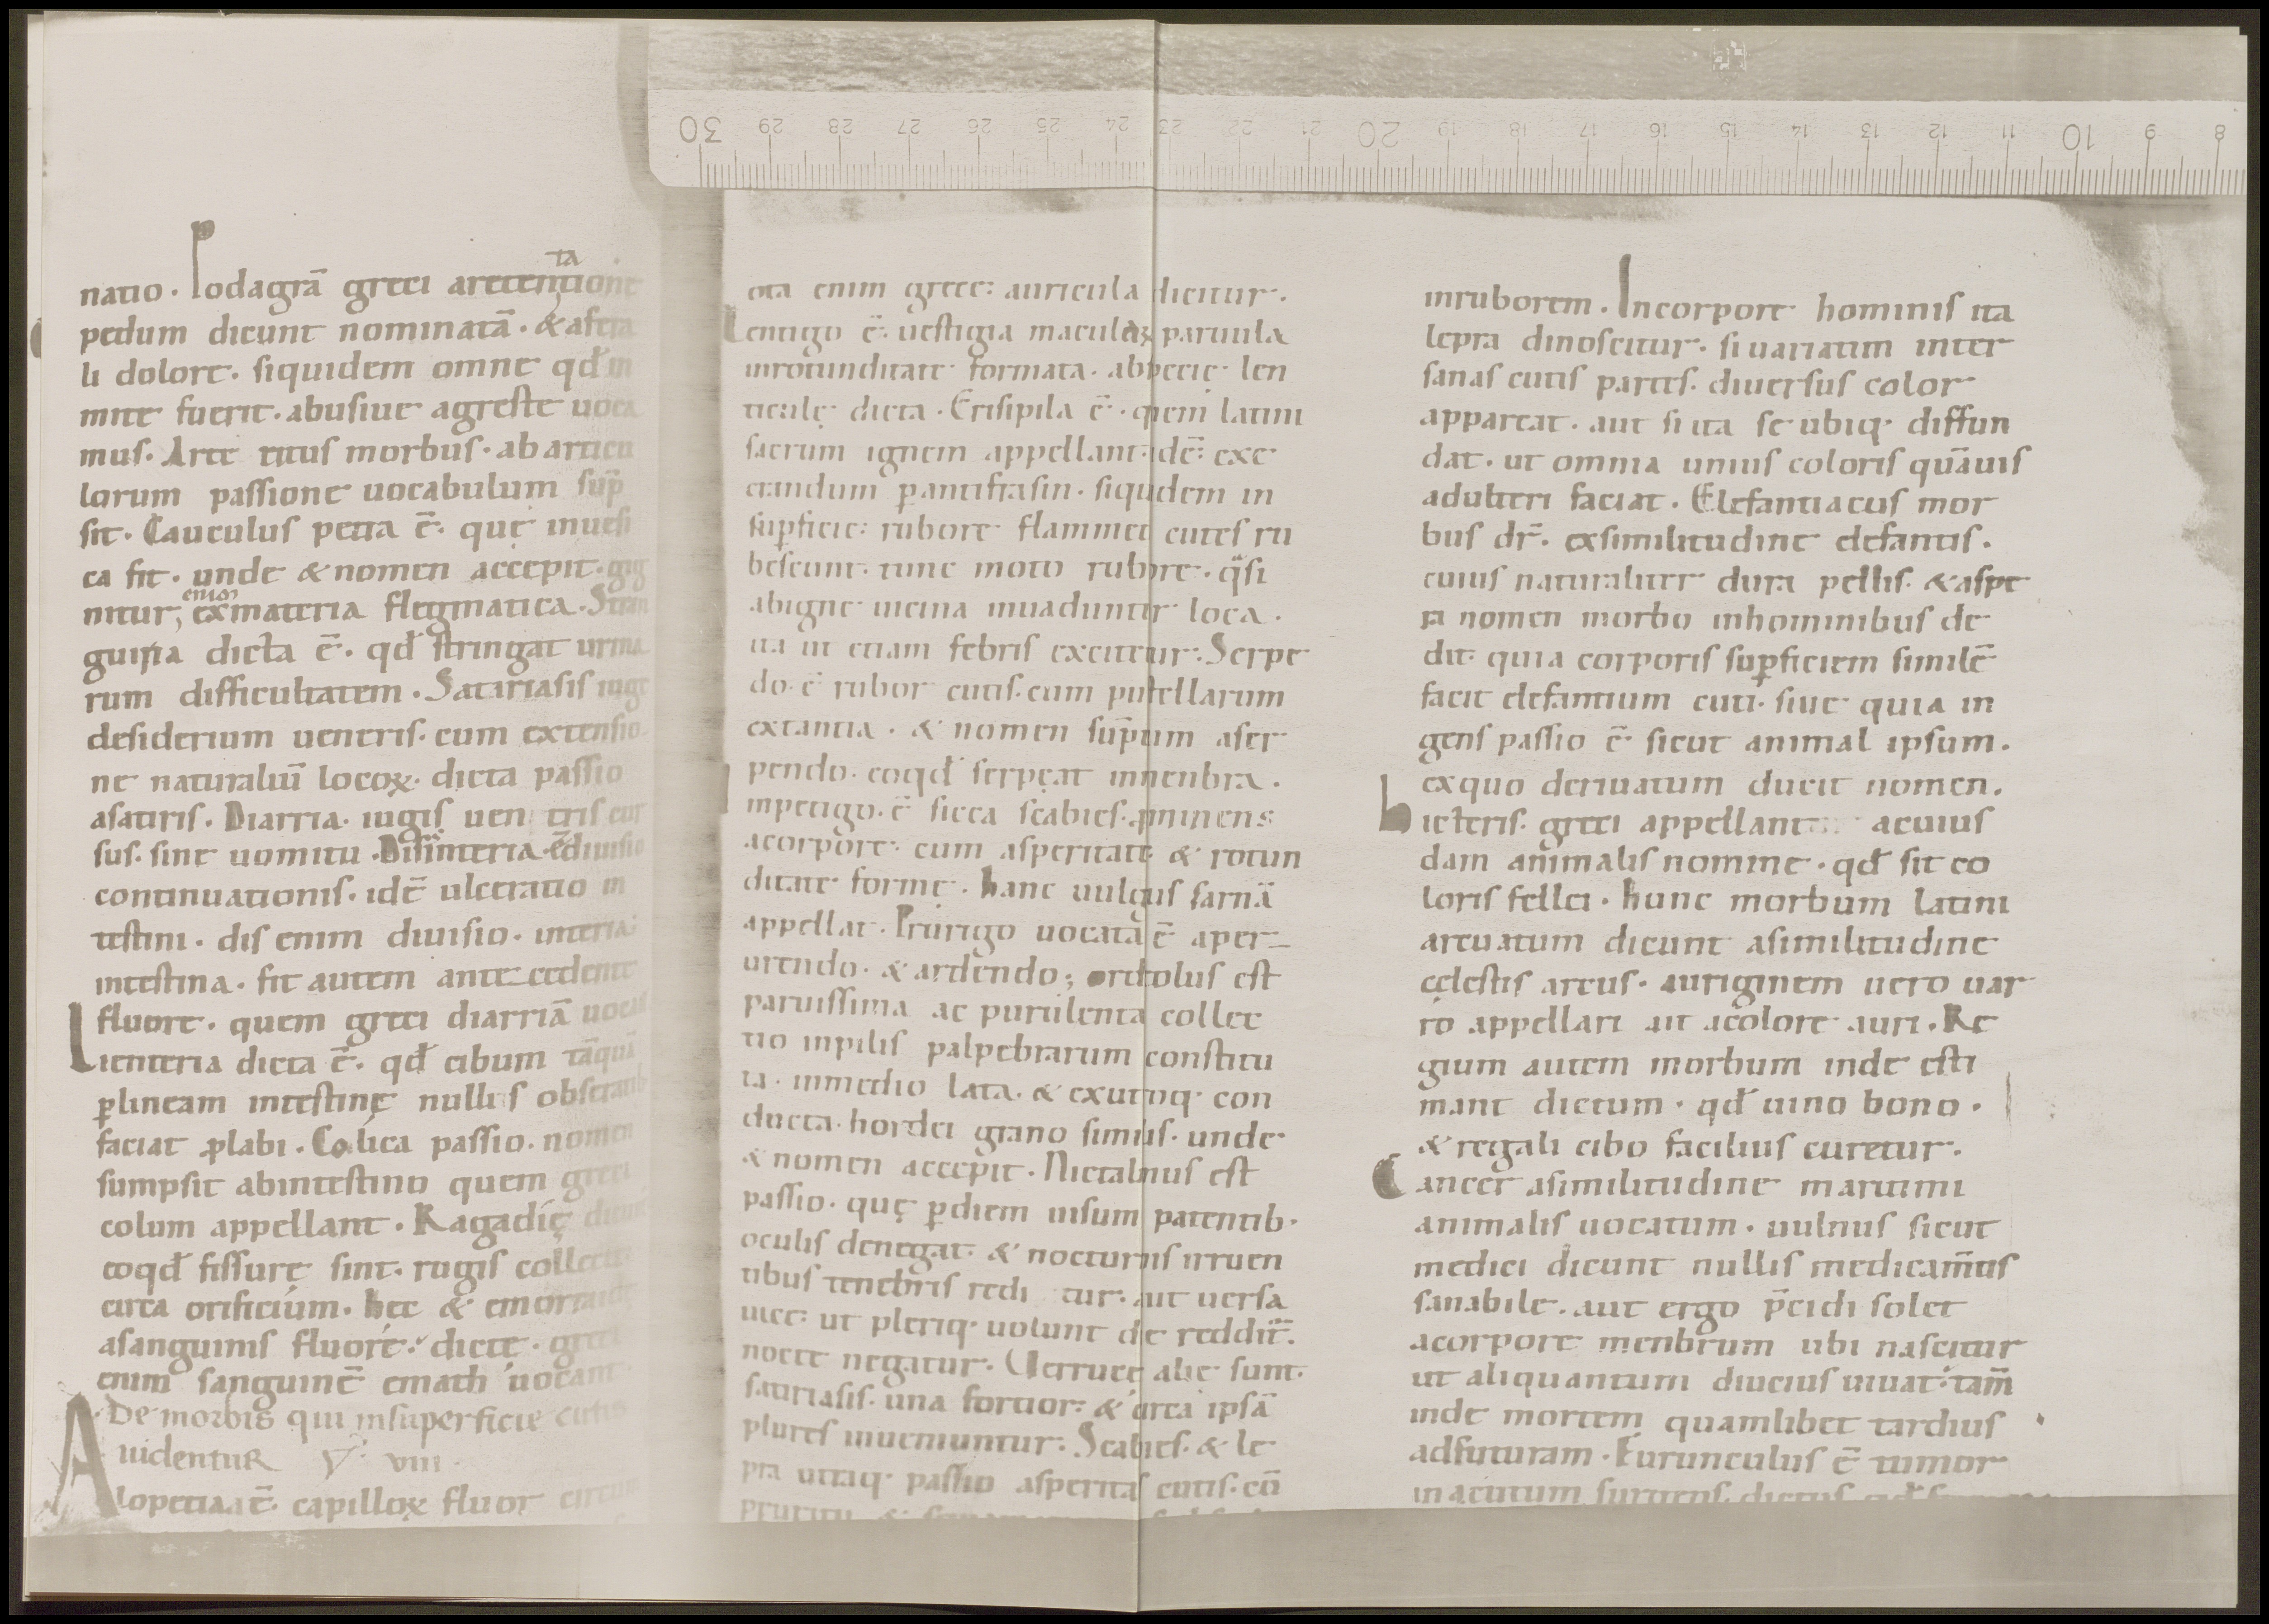 30 29 28 27 26 25 24 23 22 21 20 19 18 17 16 15 14 13 12 11 10 9 8
ta
natio. Podagrā greci aretentione
pedum dicunt nominatā. & afera
li dolore. siquidem omne qđ in
mite fuerit. abusiue agreste uoca
mus. Arte titus morbus. ab articu
lorum passione uocabulum sūp
sit. Cauculus petra ē. quę inuesi
ca fit. unde & nomen accepit. gig
nitur; ex materia flegmatica. Stran
guiria dicta ē. qđ stringat urina
rum difficultatem. Satiriasis iuge
desiderium ueneris. cum extensio
ne naturaliū locoꝝ. dicta passio
a satiris. Diarria. iugis uentris cur
sus. sine uomitu. Disinteria. ē diuisio
continuationis. idē ulceratio in
testini. dis enim diuisio. interia.
intestina. fit autem antecedente
fluore. quem greci diarriā uocant
Lienteria dicta ē. qđ cibum tāquā
ꝑ lineam intestinę nullis obstantib
faciat ꝓlabi. Colica passio. nomen
sumpsit ab intestino quem greci
colum appellant. Ragadię dicunt
eoqđ fissurę sint. rugis collectę
circa orificium. hęc & emorraide
a sanguinis fluore. dictę. greci
enim sanguinē emath uocant.
De morbis qui in superficie cutis
uidentur viii.
Alopetia ē. capilloꝝ fluor circum
ota enim grece: auricula dicitur.
Lentigo ē. uestigia maculaꝝ paruula
in rotunditate formata. ab specie len
ticulę dicta. Erisipila ē. quem latini
sacrum ignem appellant. idē: exe
crandum ꝑ antifrasin. siquidem in
suꝑficie: rubore flammeo cutes ru
bescunt. tunc moto rubore. q̈si
ab igne uicina inuaduntur loca.
ita ut etiam febris excitetur. Serpe
do. ē rubor cutis. cum pustellarum
extantia. & nomen sūptum a ser
pendo. eoqđ serpeat in menbra.
Inpetigo. ē sicca scabies. ꝓminens
a corpore. cum asperitate & rotun
ditate formę. hanc uulgus sarnā
appellat. Prurigo uocata ē a per
urendo. & ardendo; ordeolus est
paruissima ac purulenta collec
tio in pilis palpebrarum constitu
ta. in medio lata. & ex utroq; con
ducta. hordei grano similis. unde
& nomen accepit. Nictalmus est
passio. quę ꝑ diem uisum patentib.
oculis denegat. & nocturnis irruen
tibus tenebris redi tur. aut uersa
uice: ut pleriq; uolunt die redditr̄.
nocte negatur. Uerrucę alię sunt.
satiriasis. una fortior. & circa ipsā
plures inueniuntur. Scabies. & le
pra utraq; passio asperitas cutis. cū
pruritu &
in ruborem. In corpore hominis ita
lepra dinoscitur. si uariatim inter
sanas cutis partes. diuersus color
appareat. aut si ita se ubiq; diffun
dat. ut omnia unius coloris quāuis
adulteri faciat. Elefantiacus mor
bus dr̄. ex similitudine elefantis.
cuius naturaliter dura pellis. & aspe
ra nomen morbo in hominibus de
dit. quia corporis suꝑficiem similē
facit elefantium cuti. siue quia in
gens passio ē sicut animal ipsum.
ex quo deriuatum ducit nomen.
hicteris. greci appellant a cuius
dam animalis nomine. qđ sit co
loris fellei. hunc morbum latini
arcuatum dicunt a similitudine
celestis arcus. auriginem uero uar
ro appellari ait a colore auri. Re
gium autem morbum inde esti
mant dictum. qđ uino bono.
& regali cibo facilius curetur.
Cancer a similitudine maritimi
animalis uocatum. uulnus sicut
medici dicunt nullis medicam̄tis
sanabile. aut ergo p̄cidi solet
a corpore menbrum ubi nascitur
ut aliquantum diucius uiuat. tam̄
inde mortem quamlibet tardius
adfuturam. Furunculus ē tumor
in acutum surgens. dictus qđ